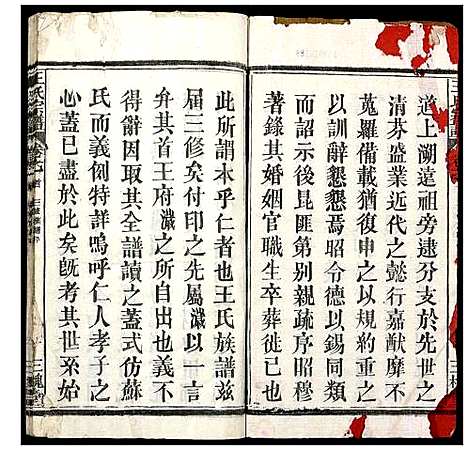 道上溯遠祖旁逮分支於先世之
清芬盛業近代之懿行嘉猷靡不
蒐羅備載猶復申之以規約重之
以訓辭懇懇焉昭令德以錫同類
而詔示後昆匪第別親疏序昭穆
著錄其婚姻官職生卒葬徙已也
此所謂本乎仁者也王氏族譜茲
屆三修矣付印之先屬濊以一言
弁其首王府濊之所自出也義不
得辭因取其全譜讀之式仿蘇
氏而義例特詳嗚呼仁人孝子之
心蓋已盡於此矣旣考其世系始
三槐堂